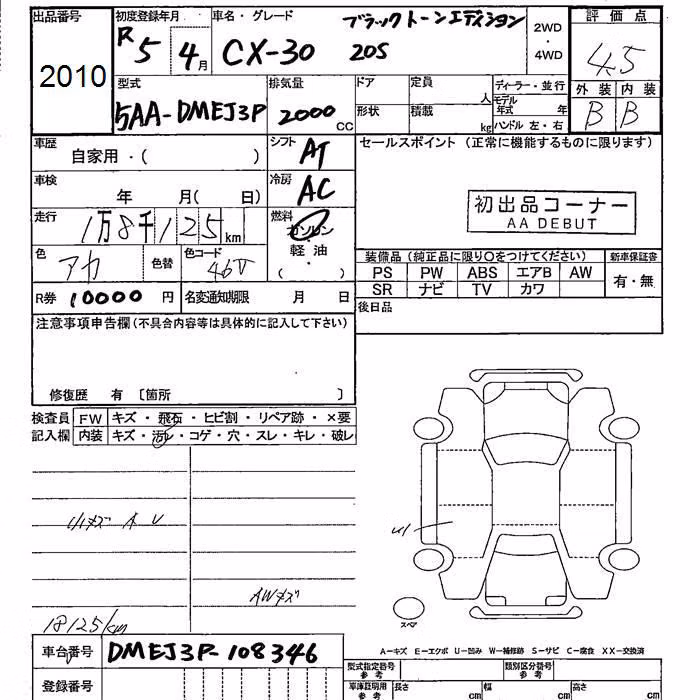 出品番号 初度登録年月 車名・グレード ブラックトーンエディション 2WD・4WD 評価点
2010 R5 4月 CX-30 20S 4.5
型式 排気量 ドア 定員 人 ディーラー・並行 外装 内装
5AA-DMEJ3P 2000 CC 形状 積載 kg モデル年式 年 ハンドル 左・右 B B
車歴 自家用・( ) シフト AT セールスポイント (正常に機能するものに限ります)
車検 年 月( 日) 冷房 AC
初出品コーナー
AA DEBUT
走行 1万8千125km 燃料 ガソリン・軽油・( )
色 アカ 色替 色コード 46V
装備品(純正品に限り○をつけてください) 新車保証書
PS PW ABS エアB AW 有・無
SR ナビ TV カワ
R券 10000円 名変通知期限 月 日 後日品
注意事項申告欄(不具合内容等は具体的に記入して下さい)
修復歴 有 〔箇所 〕
検査員 FW キズ・飛石・ヒビ割・リペア跡・×要
記入欄 内装 キズ・汚レ・コゲ・穴・スレ・キレ・破レ
小キズ A U
AWキズ
18125km
スペア
A-キズ E-エクボ U-凹み W-補修跡 S-サビ C-腐食 XX-交換済
車台番号 DMEJ3P-108346
型式指定番号 参考 類別区分番号 参考
登録番号 車庫証明用 参考 長さ cm 幅 cm 高さ cm